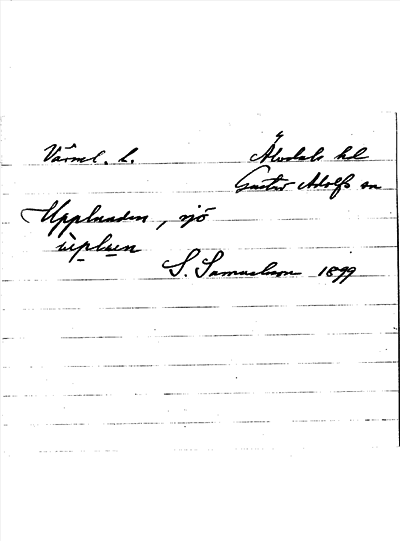 Värml. l. Älvdals hd
Gustav Adolfs sn
Upplunden, sjö
S. Samuelsson 1899